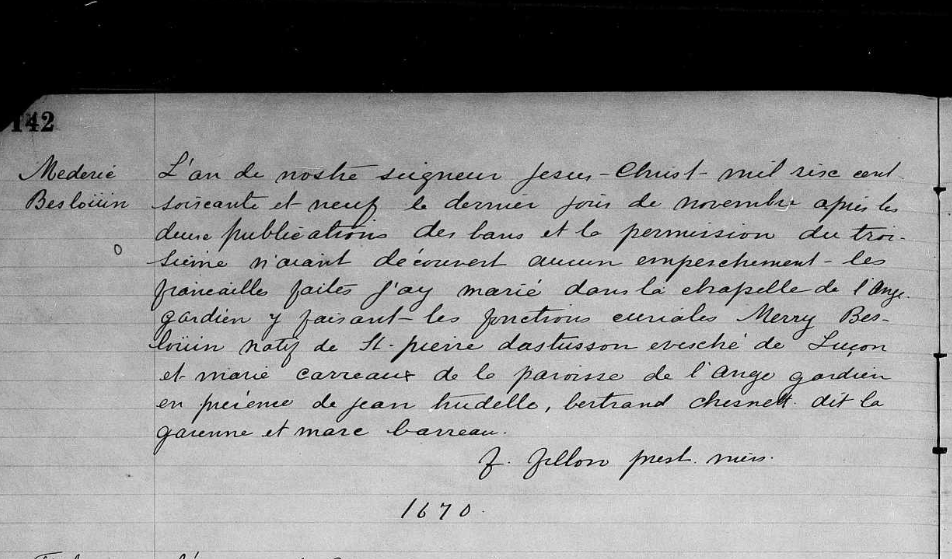 142
Mederic
Beslouin
L'an de nostre seigneur Jesus-Christ mil sixc cent
soiscante et neuf le dernier jour de novembre apres les
deuse publications des bans et la permission du troi-
sieme n'aiant découvert aucun empeschement les
fiancailles faites j'ay marié dans la chapelle de l'Ange
gardien y faisant les fonctions curiales Merry Bes-
loüin natif de St-pierre dastusson evesché de Luçon
et marie carreaux de la paroisse de l'Ange gardien
en présence de jean trudelle, bertrand chesnett. dit la
garenne et marc barreau.
f. fillon prest. miss.
1670.